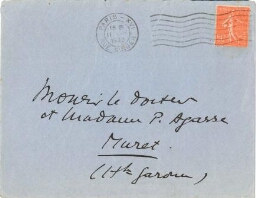 PARIS
Monsieur le docteur
et Madame P. Agasse
Muret
(Hte Garonne)